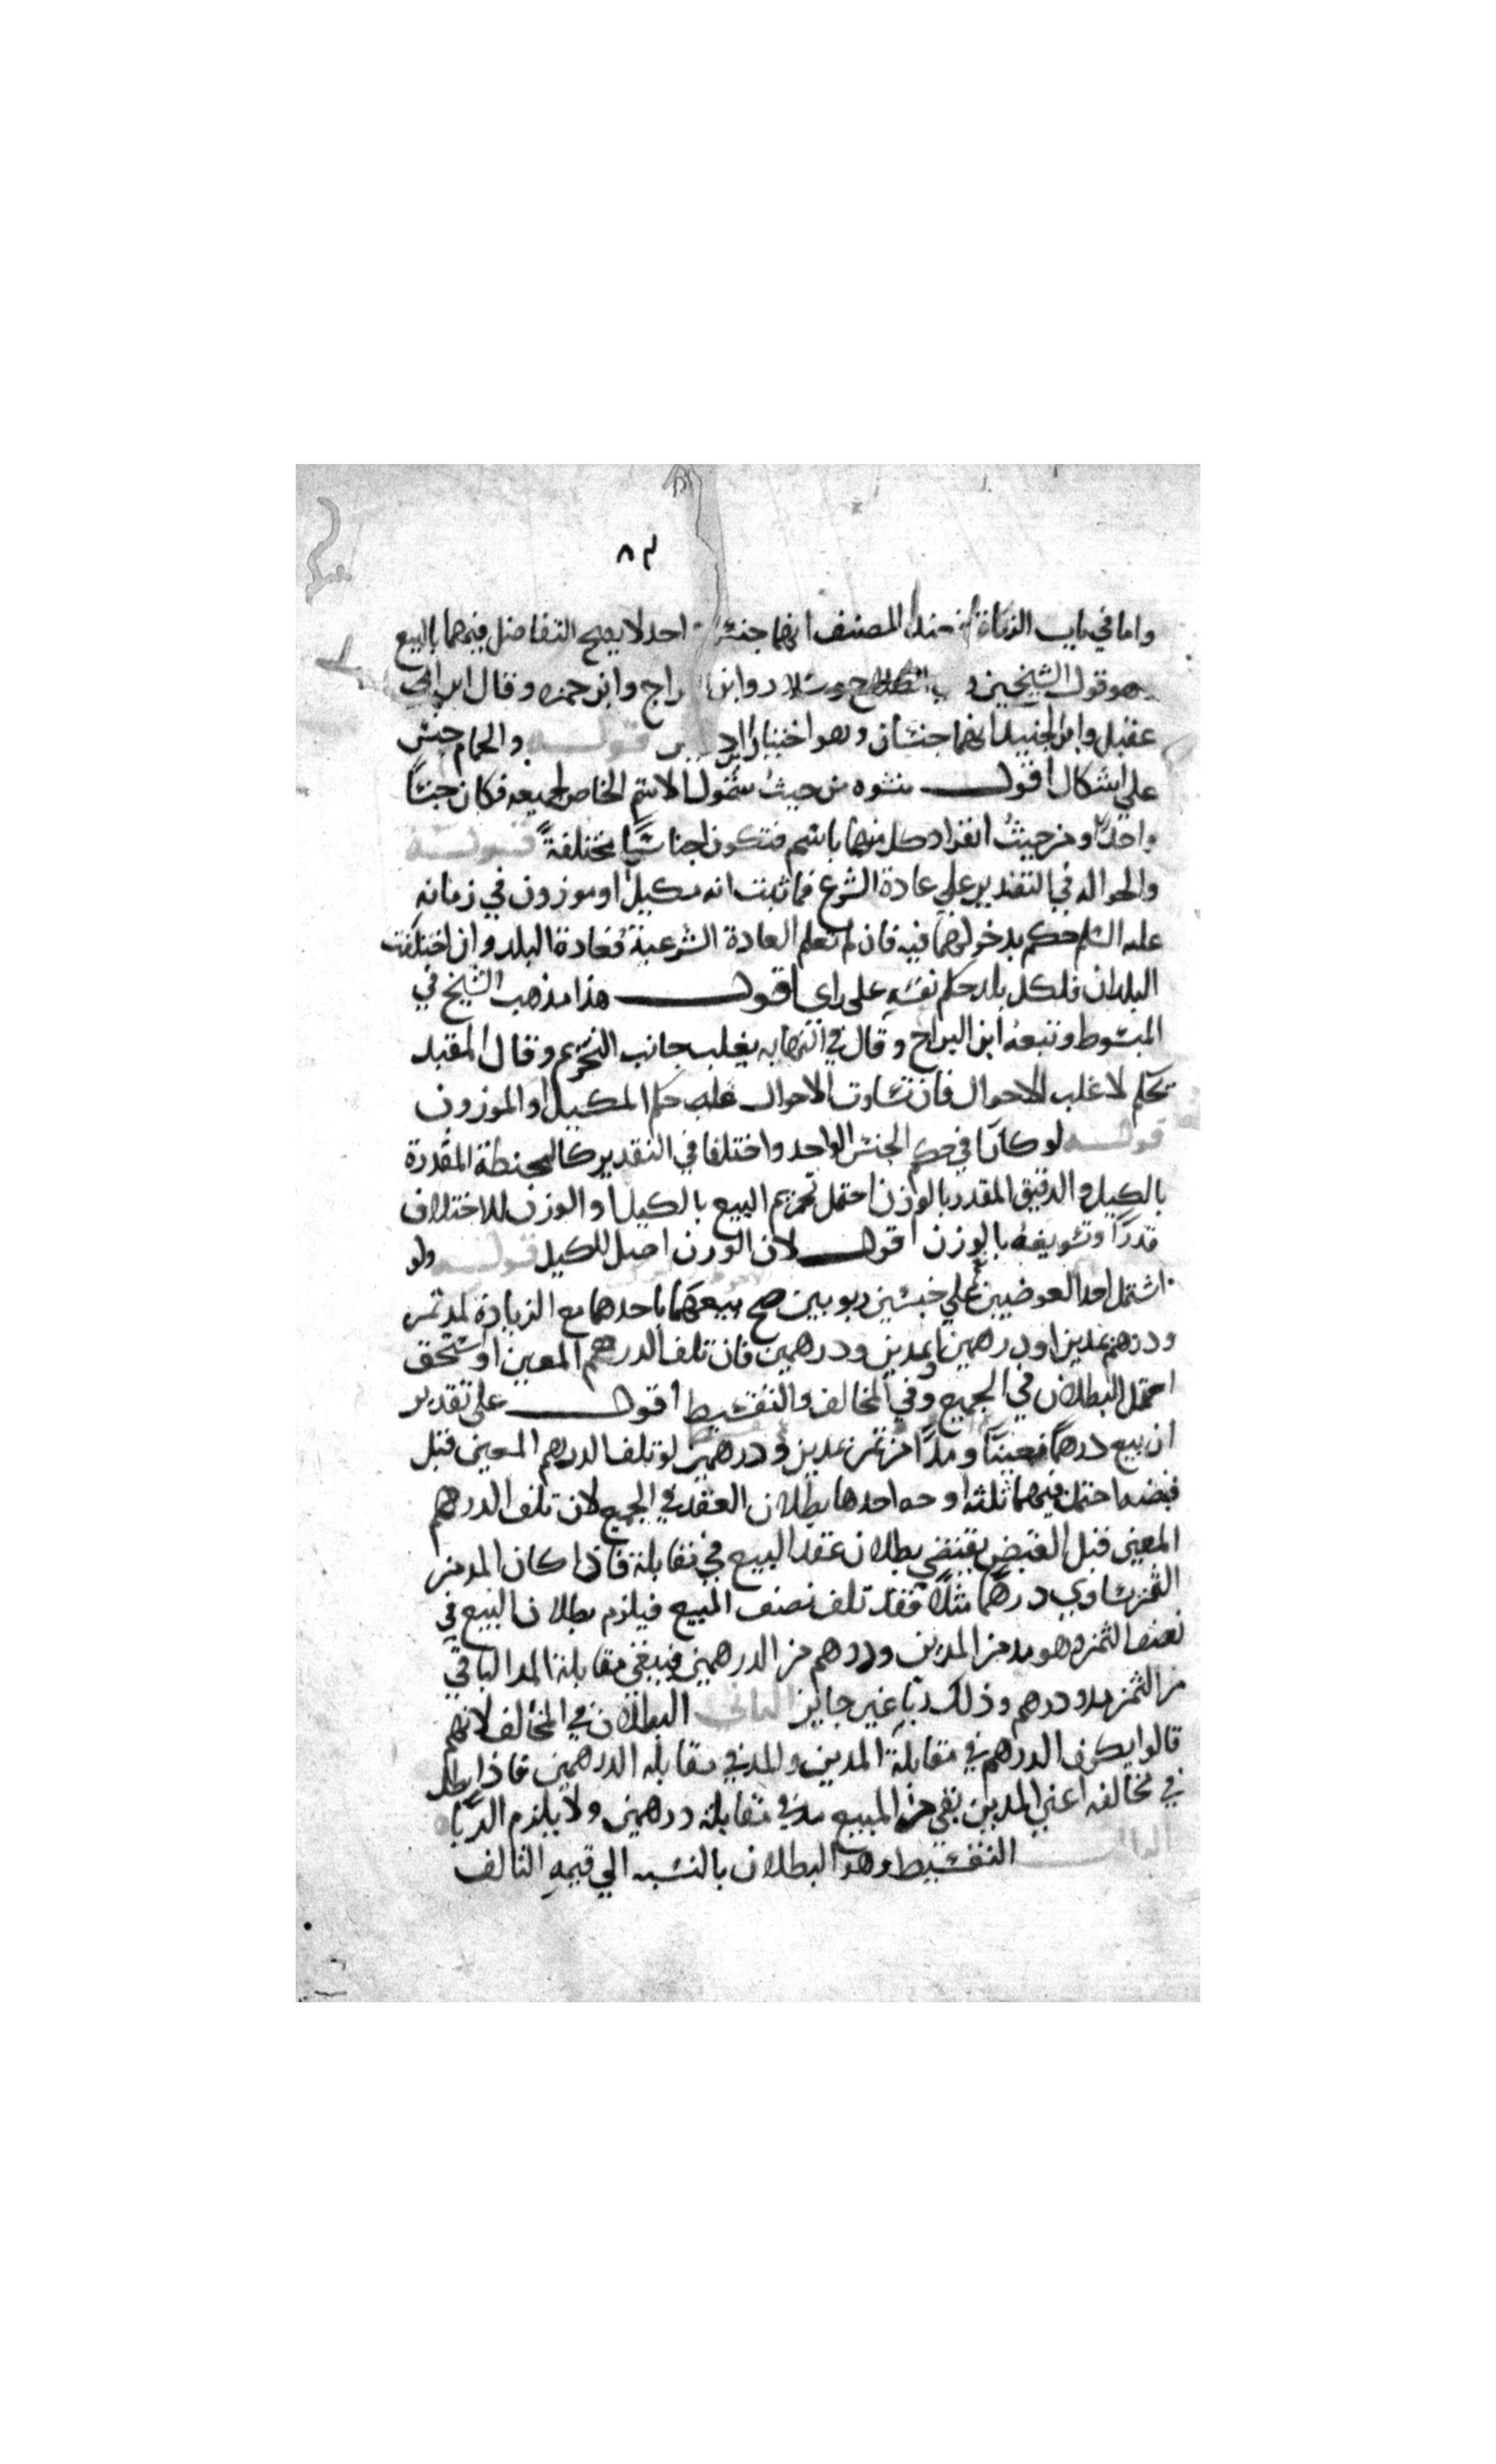 ٨٣
واما في باب الزكاة فعند المصنف انهما جنس واحد لا يصح التفاضل فيهما بالبيع
وهو قول الشيخين و الصلاح وسلار وابن البراج وابن حمزه وقال ابن ابي
عقيل وابن الجنيد انهما جنسان وهو اختيار ابن ادريس قوله والحمام جنس
على اشكال اقول منشوه من حيث شمول الاسم الخاص لجميعه فكان جنسًا
واحدًا ومن حيث انفراد كل منها باسم فتكون اجناسًا مختلفةً قوله
والحواله في التقدير على عادة الشرع فما ثبت انه مكيل او موزون في زمانه
عليه السلم حكم بدخولهما فيه فان لم تعلم العادة الشرعية فعادة البلد وان اختلفت
البلدان فلكل بلد حكم نفسه على راي اقول هذا مذهب الشيخ في
المبسوط وتبعه ابن البراج وقال في النهايه يغلب جانب التحريم وقال المفيد
تحكم لاغلب الاحوال فان تساوت الاحوال غلب حكم المكيل او الموزون
قوله لو كانا في حكم الجنس الواحد واختلفا في التقدير كالحنطة المقدرة
بالكيل والدقيق المقدر بالوزن احتمل تحريم البيع بالكيل او الوزن للاختلاف
قدرًا وتسويغه بالوزن اقول لان الوزن اصل للكيل قوله ولو
اشتمل احد العوضين على جنسين ربويين صح بيعهما باحدهما مع الزيادة كمد تمر
ودرهم بمدين او درهمين او بمدين ودرهمين فان تلف الدرهم المعين او استحق
احتمل البطلان في الجميع وفي المخالف والتقسيط اقول على تقدير
ان بيع درهمًا معينًا ومدًا من تمر بمدين ودرهمين لو تلف الدرهم المعين قبل
قبضه احتمل فيهما ثلثه اوجه احدها بطلان العقد في الجميع لان تلف الدرهم
المعين قبل القبض يقتضي بطلان عقد البيع في مقابلة فاذا كان المد من
الثمن يساوي درهمًا مثلًا فقد تلف نصف المبيع فيلزم بطلان البيع في
نصف الثمن وهو مد من المدين ودرهم من الدرهمين فيبقى في مقابلة المد الباقي
من الثمن مد ودرهم وذلك ربًا غير جايز الثاني البطلان في المخالف لانهم
قالوا يكون الدرهم في مقابلة المدين والمد في مقابله الدرهمين فاذا بطل
في مخالفه اعني المدين بقي من المبيع مد في مقابلة درهمين ولا يلزم الربا
الثالث التقسيط وهو البطلان بالنسبه الى قيمه التالف